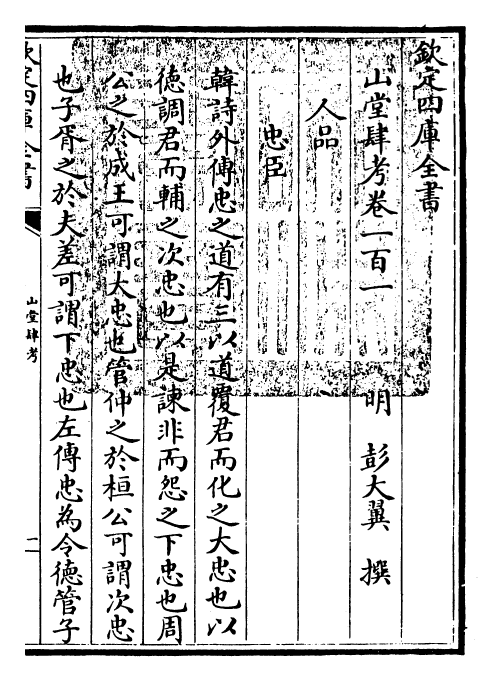 欽定四庫全書
山堂肆考卷一百一
明 彭大翼 撰
人品
忠臣
韓詩外傳忠之道有三以道覆君而化之大忠也以
德調君而輔之次忠也以是諫非而怨之下忠也周
公之於成王可謂大忠也管仲之於桓公可謂次忠
也子胥之於夫差可謂下忠也左傳忠為令德管子
欽定四庫全書
山堂肆考
一